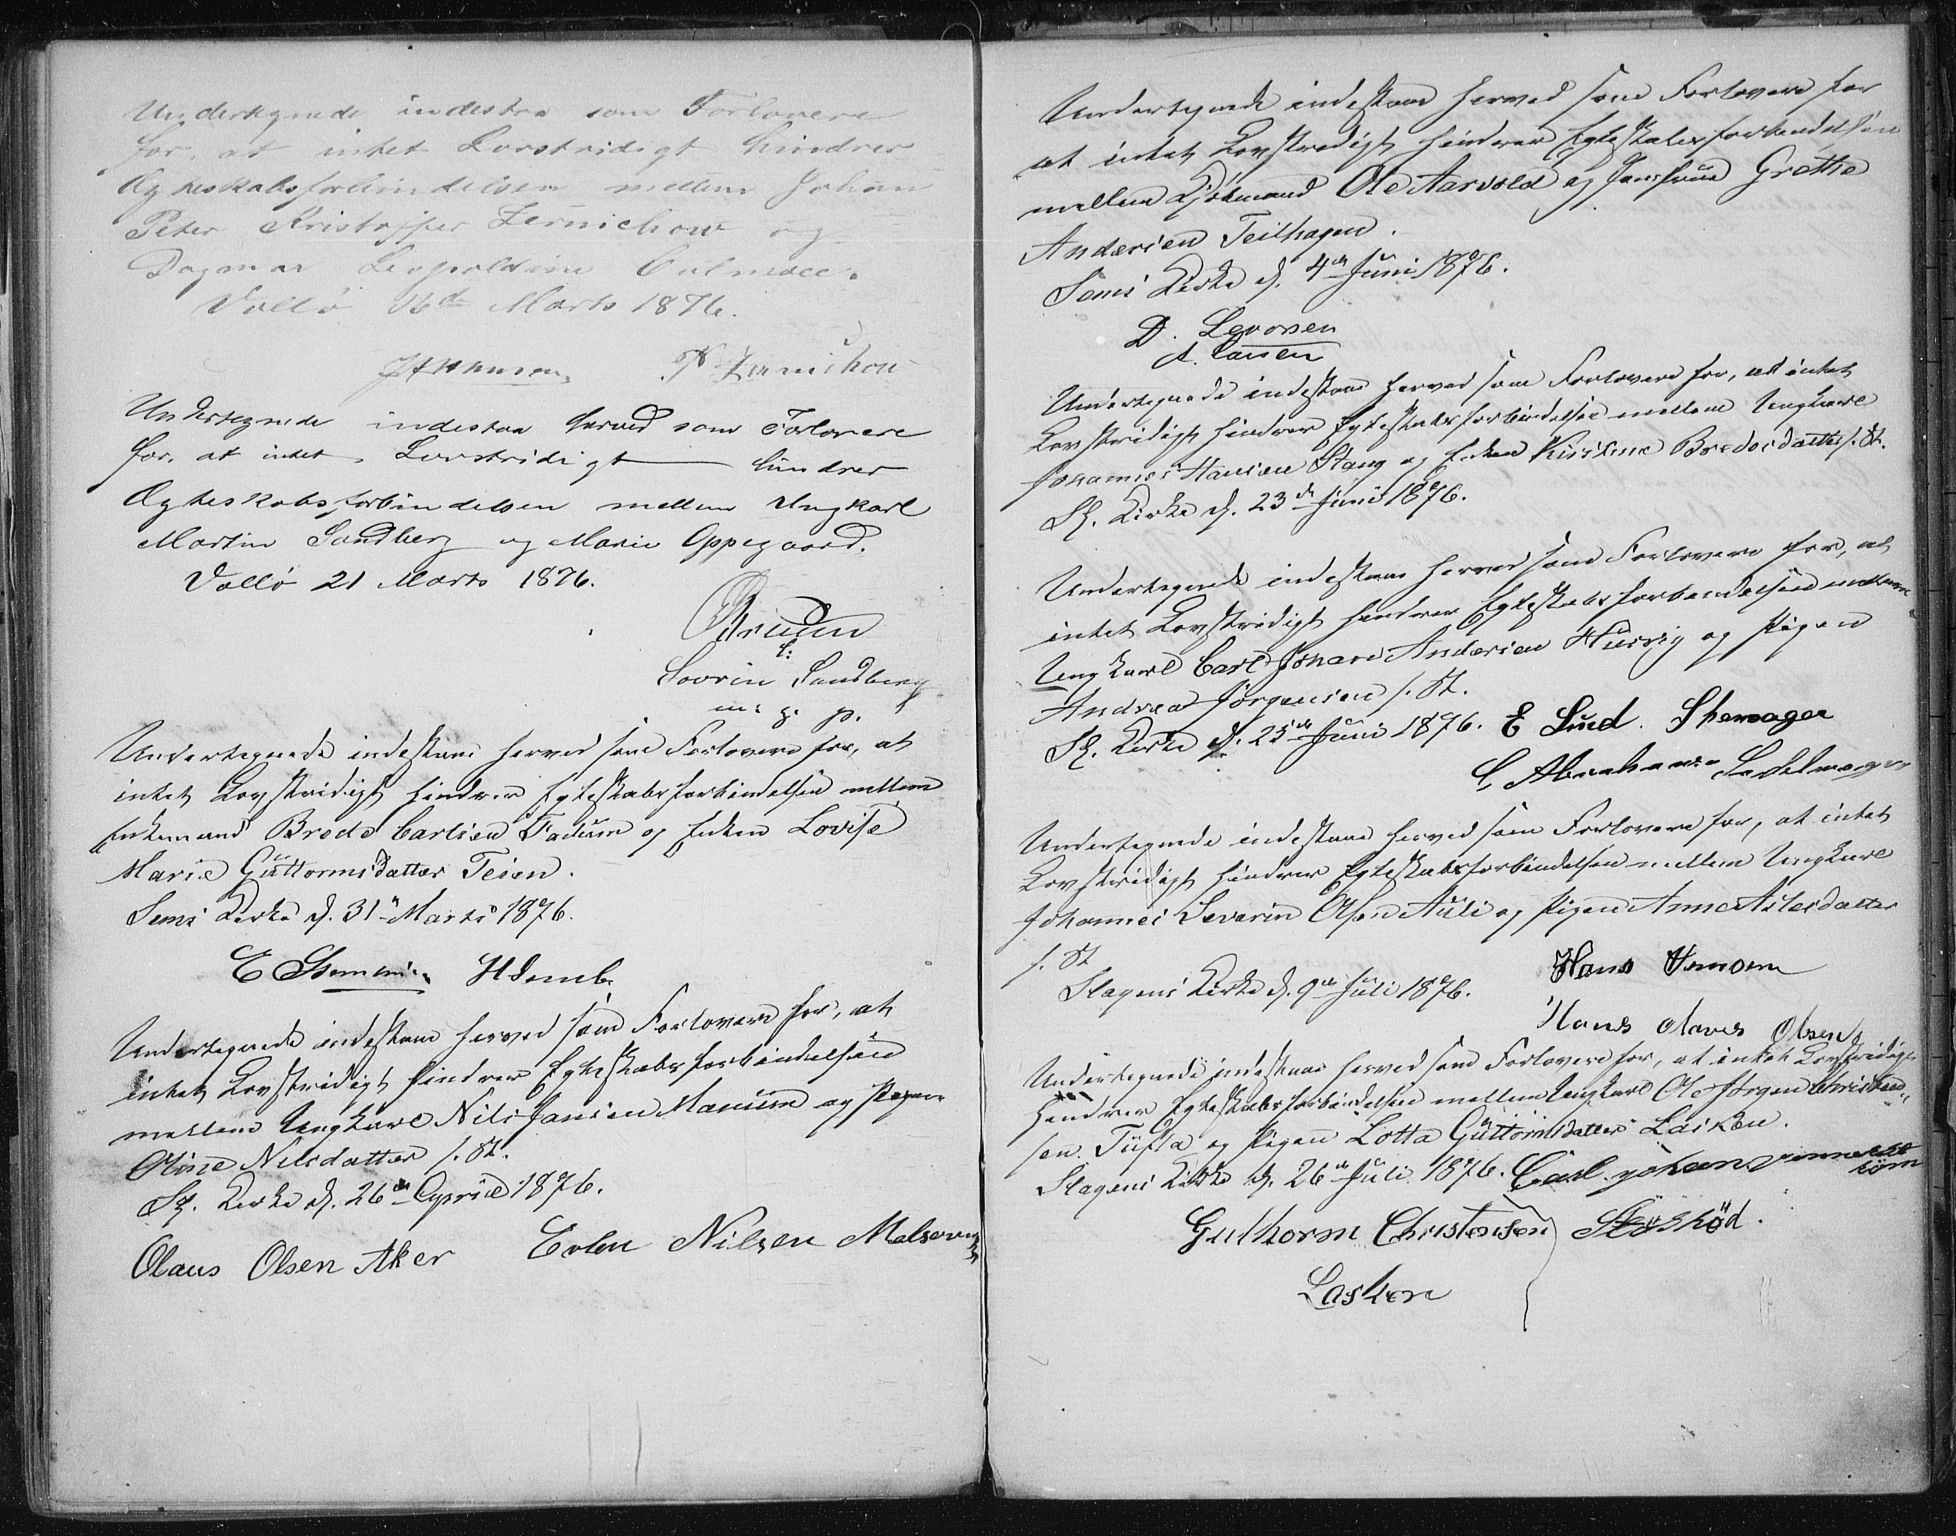 Undertegnede indestaa som Forlovere
for, at intet Lovstridigt hindrer
Ægteskabsforbindelsen mellem Johan
Peter Kristoffer Zernichow og
Dagmar Leopoldine
Vallø 16de Marts 1876.
Zernichow
Undertegnede indestaa herved som Forlovere
for, at intet Lovstridigt hindrer
Ægteskabsforbindelsen mellem Ungkarl
Martin Sandberg og Marie Oppegaard.
Vallø 21 Marts 1876.
Bruun
Sandberg
m. p.
Undertegnede indestaae herved som Forlovere for, at
intet Lovstridigt hindrer Egteskabsforbindelsen mellem
Enkemand Brede Carlsen Fadum og Enken Lovise
Marie Guttormsdatter Teien.
Sems Kirke d. 31 Marts 1876.
H Semb
Undertegnede indestaae herved som Forlovere for, at
intet Lovstridigt hindrer Egteskabsforbindelsen
mellem Ungkarl Nils Jansen Manum og Pigen
Oline Nilsdatter s. St.
Sl. Kirke d. 26de April 1876.
Olaus Olsen Aker Nilsen
Undertegnede indestaae herved som Forlovere for
at intet Lovstridigt hindrer Egteskabsforbindelsen
mellem Ole Aarvold og Jomfrue Grethe
Andersen Teilhagen.
Sems Kirke d. 4de Juni 1876.
D. Levorsen
Undertegnede indestaae herved som Forlovere for, at intet
Lovstridigt hindrer Egteskabsforbindelsen mellem Ungkarl
Johannes Hansen Stang og Enken Kirstine Bredesdatter s. St.
Sl. Kirke d. 23de Juni 1876.
Undertegnede indestaae herved som Forlovere for, at
intet Lovstridigt hindrer Egteskabsforbindelsen mellem
Ungkarl Carl Johan Andersen Husvig og Pigen
Andrea Jørgensen s. St.
Sl. Kirke d. 25de Juni 1876. E Lund. Skomager
Undertegnede indestaae herved som Forlovere for, at intet
Lovstridigt hindrer Egteskabsforbindelsen mellem Ungkarl
Johannes Severin Olsen Auli og Pigen Anne Aslesdatter
s. St
Slagens Kirke d. 9de Juli 1876. Hans
Hans Olaves Olsen
Undertegnede indestaae herved som Forlovere for, at intet Lovstridigt
hindrer Egteskabsforbindelsen mellem Ungkarl Ole Jørgen Christen-
sen Tufta og Pigen Lotta Guttormsdatter Lasken.
Slagens Kirke d. 26de Juli 1876. Carl Johan
Guthorm Christensen
Lasken